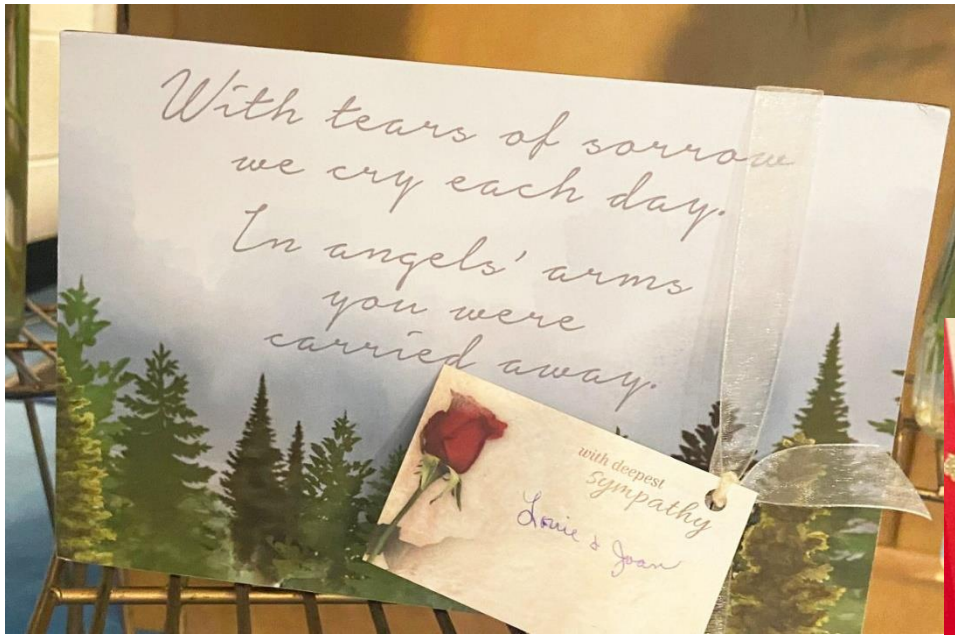 With tears of sorrow
we cry each day.
In angels' arms
you were
carried away.
with deepest
sympathy
Louie & Joan